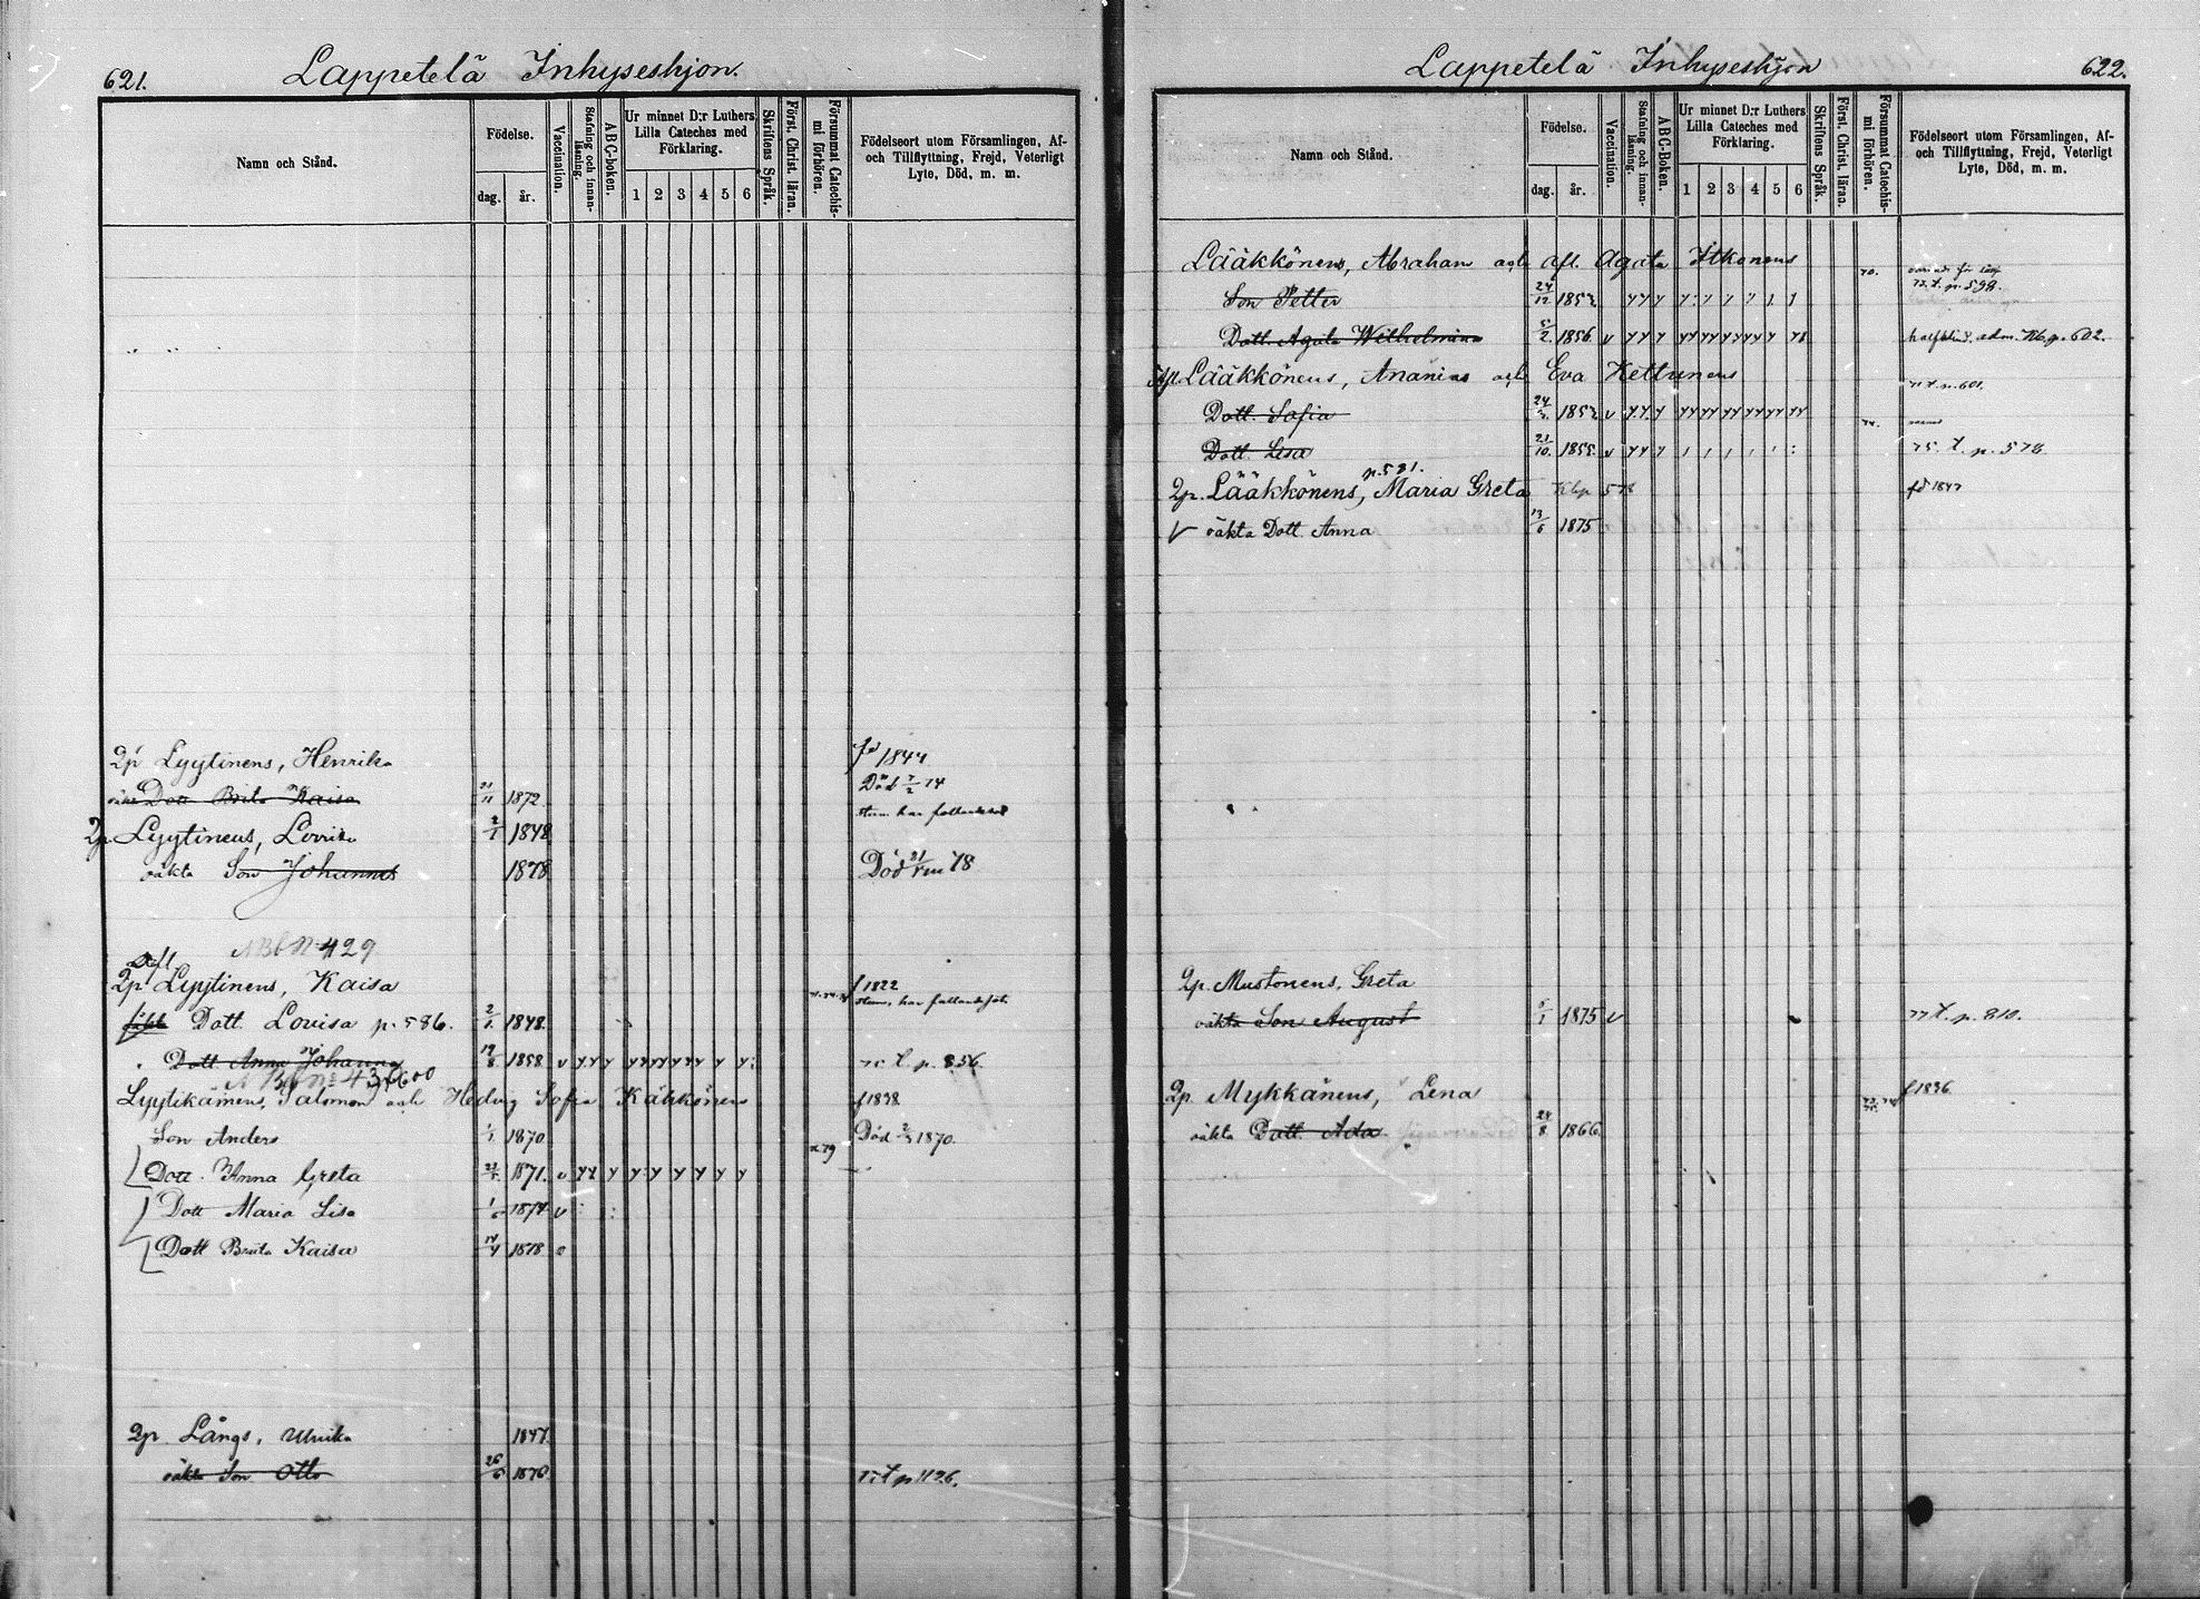 621.
Lappetelä Inhyseshjon.
Namn och Stånd.
Födelse.
dag.
år.
Vaccination.
Stafning och innan-läsning.
ABC-boken.
Ur minnet D:r Luthers Lilla Cateches med Förklaring.
1 2 3 4 5 6
Skriftens Språk.
Först. Christ. läran.
Försummat Catechis-mi förhören.
Födelseort utom Församlingen, Af- och Tillflyttning, Frejd, Veterligt Lyte, Död, m. m.
Qp Lyytinens, Henrika fd 1844
Dott Brita Kaisa 21/11 1872 Död 7/2 74
Qp. Lyytinens, Lovisa 2/1 1848
oäkta Son Johannes 1878 Död 21/VIII 78
429
Aft.
Qp Lyytinens, Kaisa f 1822
Dott. Lovisa p. 586. 2/1 1848.
Dott Anna Johanna 19/8 1858 v 75 t. p. 856.
Lyytikäinens, Salomon och Hedvig Sofia Kähkönens f 1838
Son Anders 1/1 1870 Död 2/3 1870.
Dott. Anna Greta 1871. v
Dott Maria Lisa 1874 v
Dott Brita Kaisa 14/4 1878
Qp. Långs, Ulrika 1847.
oäkta Son Otto 26/6 1876 p 1126.
Lappetelä Inhyseshjon
622.
Namn och Stånd.
Födelse.
dag.
år.
Vaccination.
Stafning och innan-läsning.
ABC-Boken.
Ur minnet D:r Luthers Lilla Cateches med Förklaring.
1 2 3 4 5 6
Skriftens Språk.
Först. Christ. läran.
Försummat Catechis-mi förhören.
Födelseort utom Församlingen, Af- och Tillflyttning, Frejd, Veterligt Lyte, Död, m. m.
Lääkkönens, Abraham och Afl. Agata Itkonens 70.
Son Petter 24/12 1852 72. t. p. 598.
Dott. Agata Wilhelmina 5/2 1856. v halfblind. adm. Kb. p. 602.
Afl. Lääkkönens, Ananias och Eva Kettunens
Dott. Sofia 1852 v
Dott. Lisa 21/10 1855. v 75. t. p. 578.
p. 581.
Qp. Lääkkönens, Maria Greta Kbp 578 fd 1847
v oäkta Dott. Anna 13/6 1875
Qp. Mustonens, Greta
oäkta Son August 5/1 1875 v 77 t. p. 810.
Qp. Mykkänens, Lena f 1836
oäkta Dott. Ada 24/8 1866.